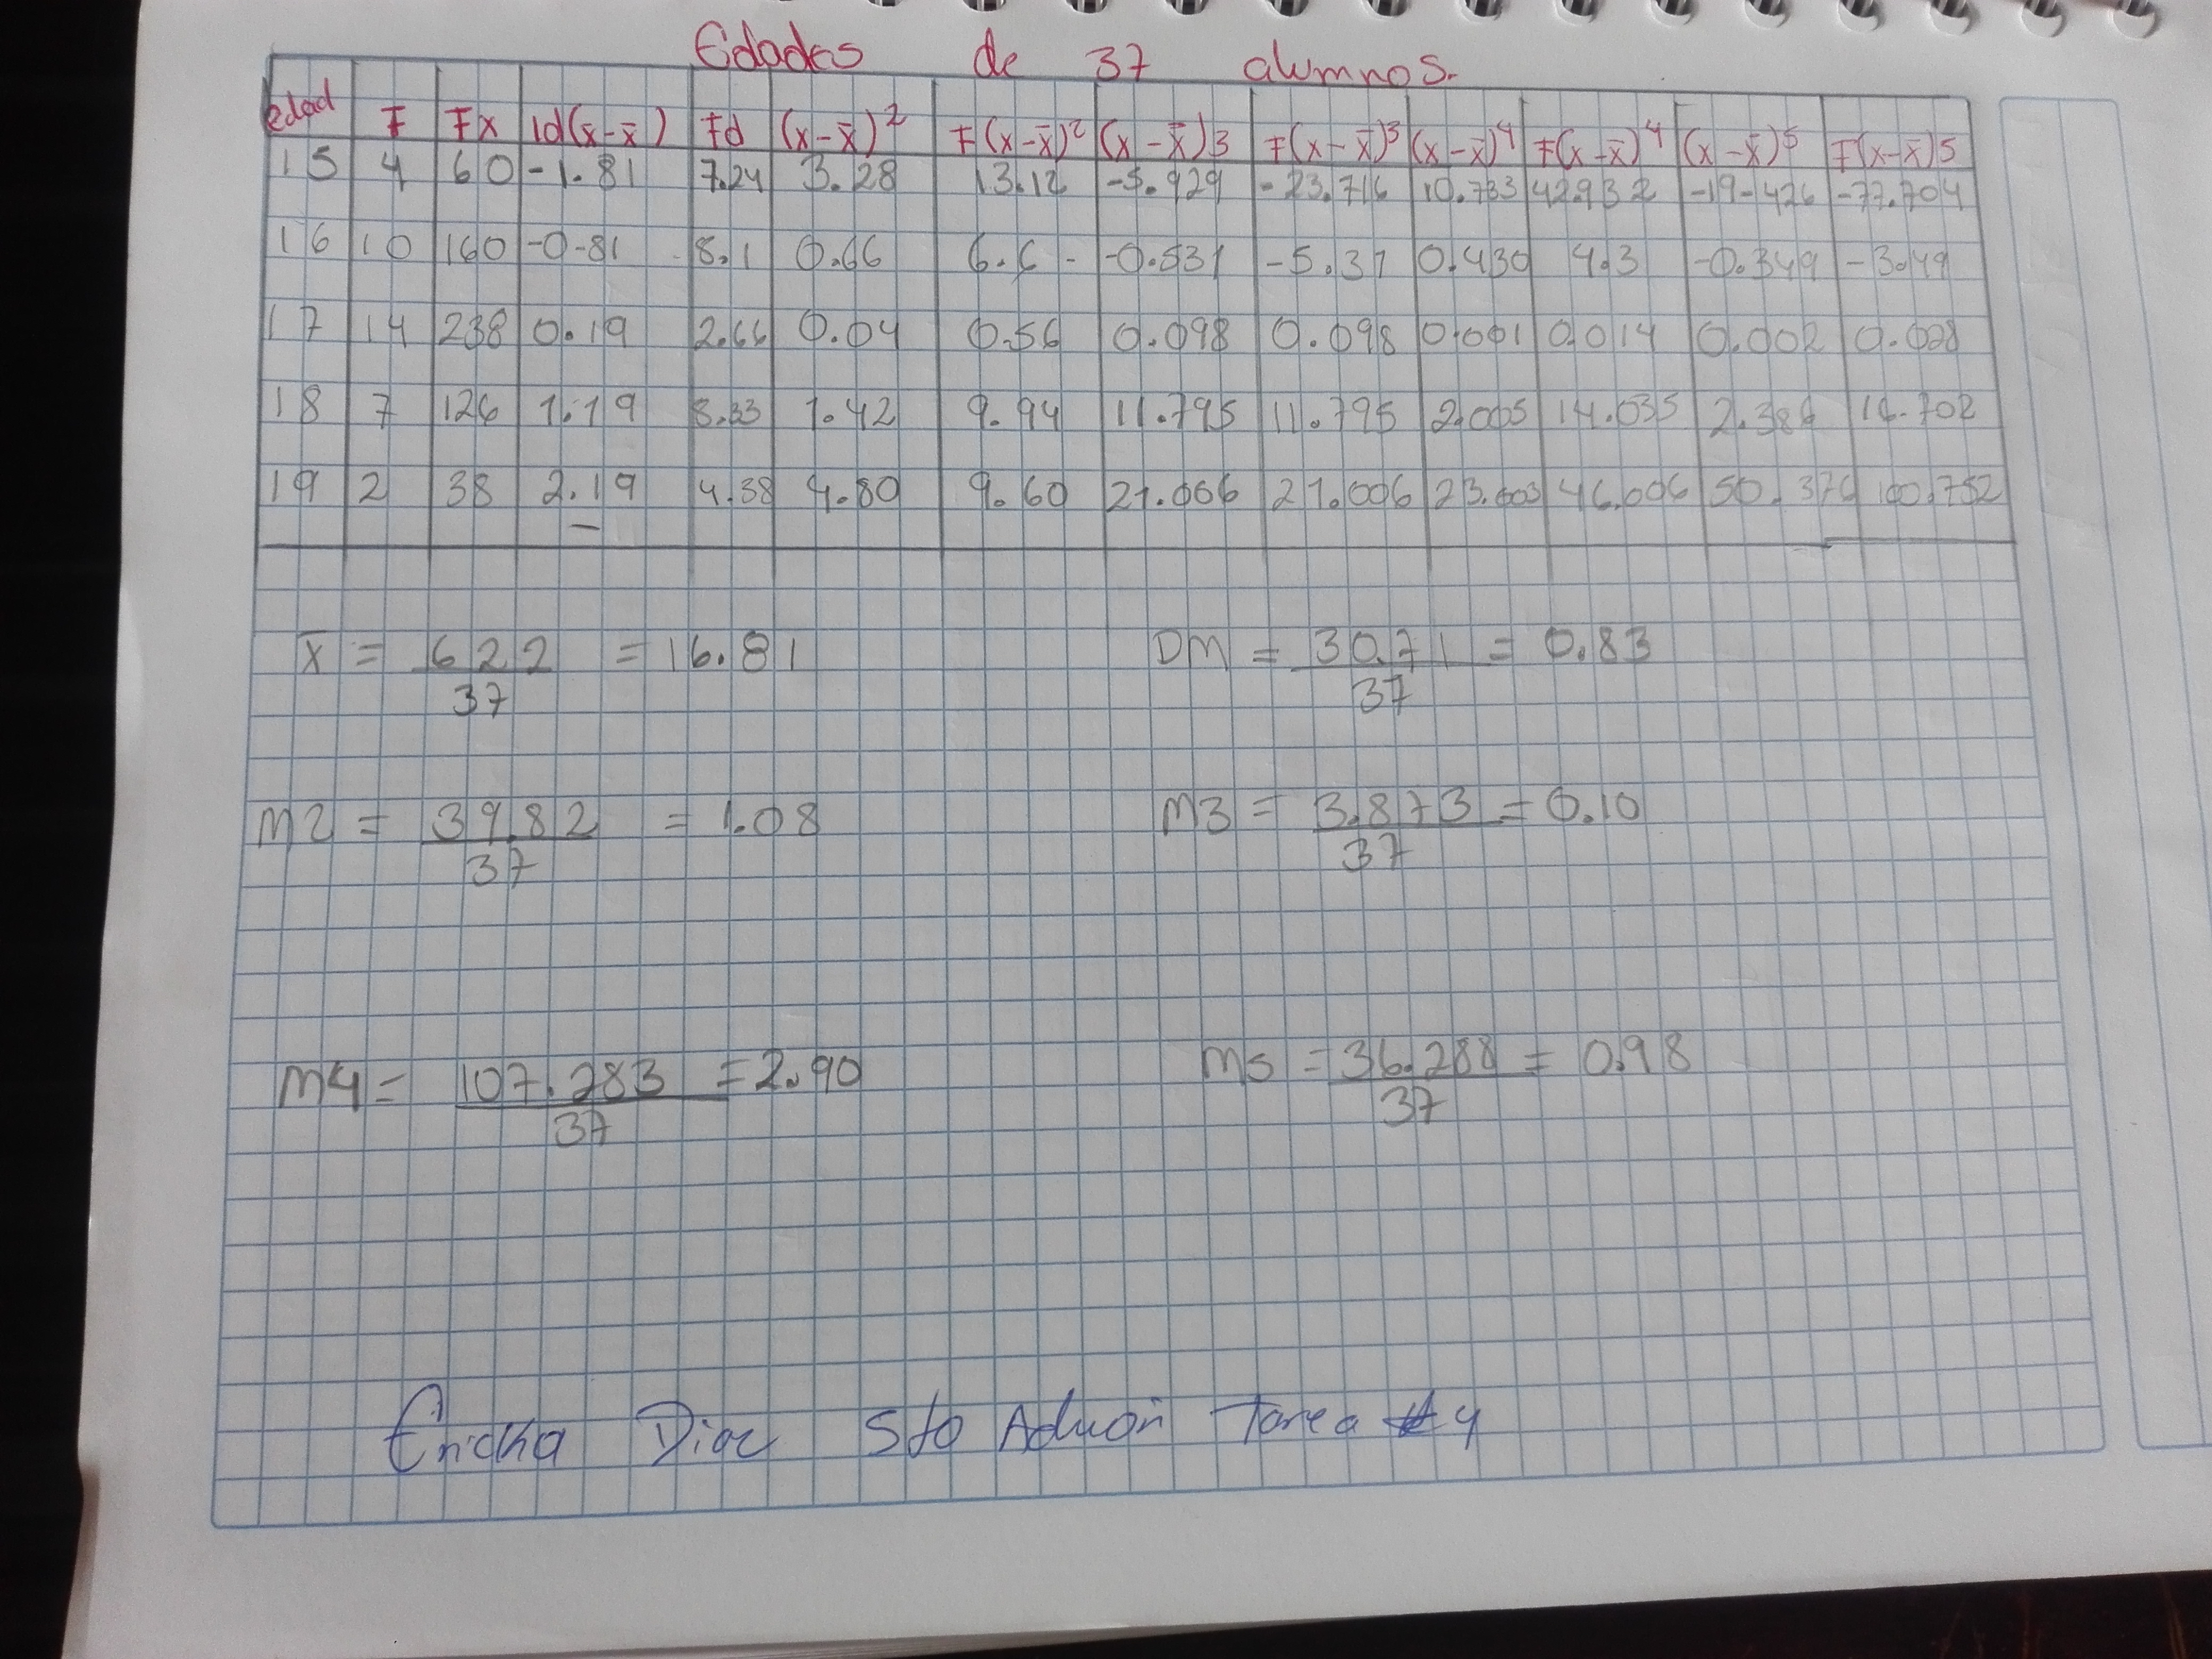 Edades de 37 alumnos.
edad F Fx |d(x-x̄) Fd (x-x̄)² F(x-x̄)² (x-x̄)3 F(x-x̄)³ (x-x̄)⁴ F(x-x̄)⁴ (x-x̄)⁵ F(x-x̄)5
15 4 60 -1.81 7.24 3.28 13.12 -5.929 -23.716 10.733 42.932 -19.426 -77.704
16 10 160 -0.81 8.1 0.66 6.6 -0.531 -5.31 0.430 4.3 -0.349 -3.49
17 14 238 0.19 2.66 0.04 0.56 0.098 0.098 0.001 0.014 0.002 0.028
18 7 126 1.19 8.33 1.42 9.94 11.795 11.795 2.005 14.035 2.386 16.702
19 2 38 2.19 4.38 4.80 9.60 21.006 21.006 23.003 46.006 50.376 100.752
x̄ = 622 = 16.81 DM = 30.71 = 0.83
37 37
M2 = 39.82 = 1.08 M3 = 3.873 = 0.10
37 37
M4 = 107.283 = 2.90 M5 = 36.288 = 0.98
37 37
Ericka Diaz 5to Aduan Tarea #4